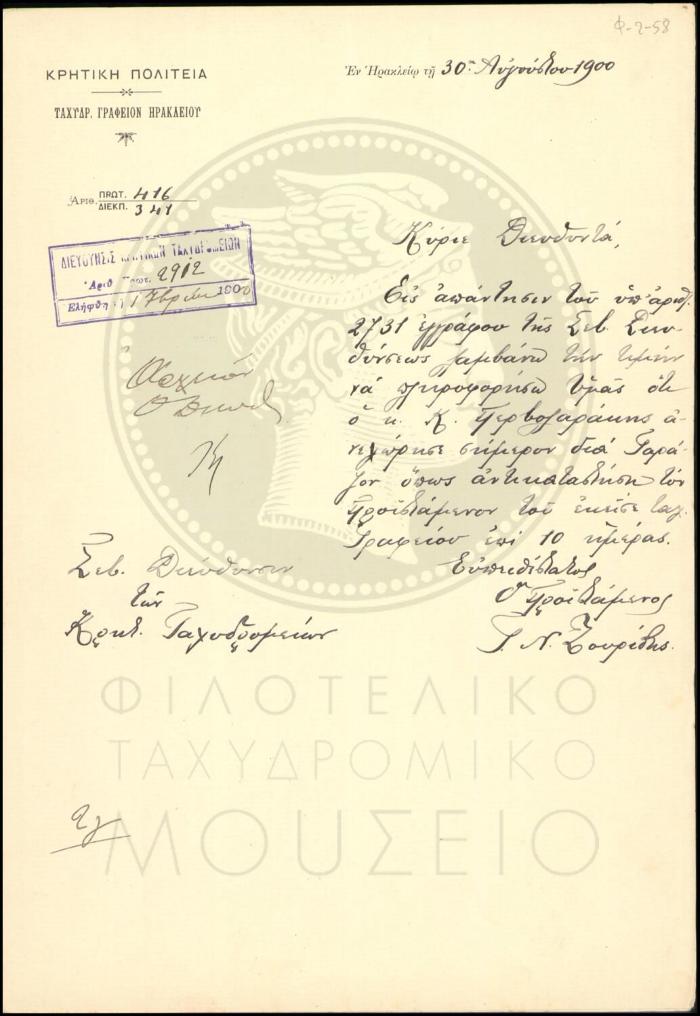 Φ-2-58
ΚΡΗΤΙΚΗ ΠΟΛΙΤΕΙΑ
ΤΑΧΥΔΡ. ΓΡΑΦΕΙΟΝ ΗΡΑΚΛΕΙΟΥ
Ἐν Ἡρακλείῳ τῇ 30 Αὐγούστου 1900
Ἀριθ. ΠΡΩΤ. 416
ΔΙΕΚΠ. 341
ΔΙΕΥΘΥΝΣΙΣ ΚΡΗΤΙΚΩΝ ΤΑΧΥΔΡΟΜΕΙΩΝ
Ἀριθ. Πρωτ. 2912
Ἐλήφθη τῇ 1 7βρίου 1900
Κύριε Διευθυντά,
Εἰς ἀπάντησιν τοῦ ὑπ' ἀριθ.
2731 ἐγγράφου τῆς Σεβ. Διευ-
θύνσεως λαμβάνω τὴν τιμὴν
νὰ πληροφορήσω ὑμᾶς ὅτι
ὁ κ. Κ. Περβολαράκης ἀ-
νεχώρησε σήμερον διὰ Γαρά-
ζον ὅπως ἀντικαταστήσῃ τὸν
προϊστάμενον τοῦ ἐκεῖσε ταχ.
Γραφείου ἐπὶ 10 ἡμέρας.
Ἀρχεῖον
Ὁ Διευθ
Εὐπειθέστατος
Ὁ Προϊστάμενος
Σεβ. Διεύθυνσιν
τῶν
Κρητ. Ταχυδρομείων
Ι. Ν. Ζουρίδης
ΦΙΛΟΤΕΛΙΚΟ
ΤΑΧΥΔΡΟΜΙΚΟ
ΜΟΥΣΕΙΟ